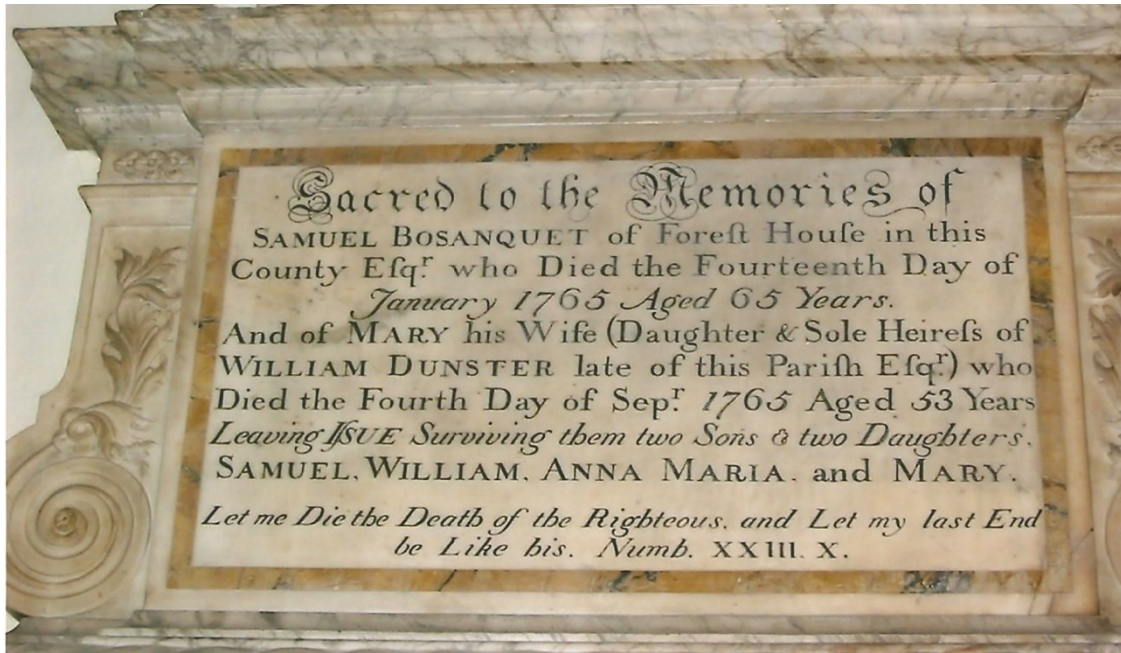 Sacred to the Memories of
SAMUEL BOSANQUET of Foreſt Houſe in this
County Eſqʳ. who Died the Fourteenth Day of
January 1765 Aged 65 Years.
And of MARY his Wife (Daughter & Sole Heireſs of
WILLIAM DUNSTER late of this Pariſh Eſqʳ.) who
Died the Fourth Day of Sepʳ. 1765 Aged 53 Years
Leaving ISSUE Surviving them two Sons & two Daughters.
SAMUEL. WILLIAM. ANNA MARIA. and MARY.
Let me Die the Death of the Righteous. and Let my last End
be Like his. Numb. XXIII. X.